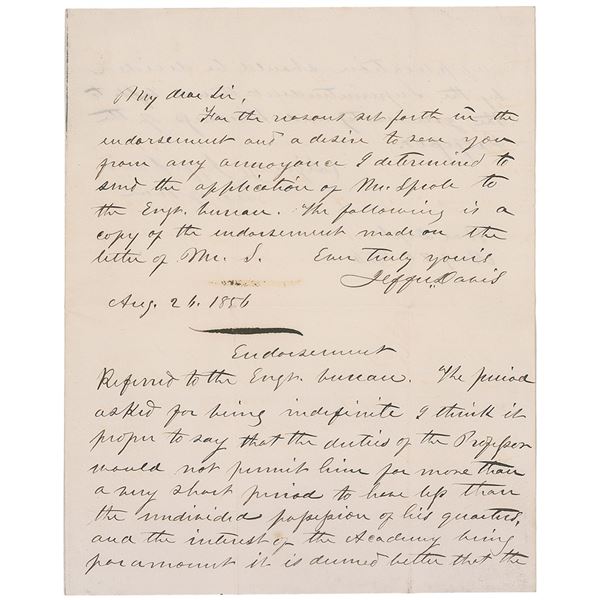 My dear Sir,
For the reasons set forth in the
endorsement and a desire to save you
from any annoyance I determined to
send the application of Mr. Sprole to
the Engr. bureau. The following is a
copy of the endorsement made on the
letter of Mr. S. Ever truly yours
Jeffn. Davis
Aug. 26. 1856
Endorsement
Referred to the Engr. bureau. The period
asked for being indefinite I think it
proper to say that the duties of the Professor
would not permit him for more than
a very short period to have less than
the undivided possession of his quarters,
and the interest of the Academy being
paramount it is deemed better that the